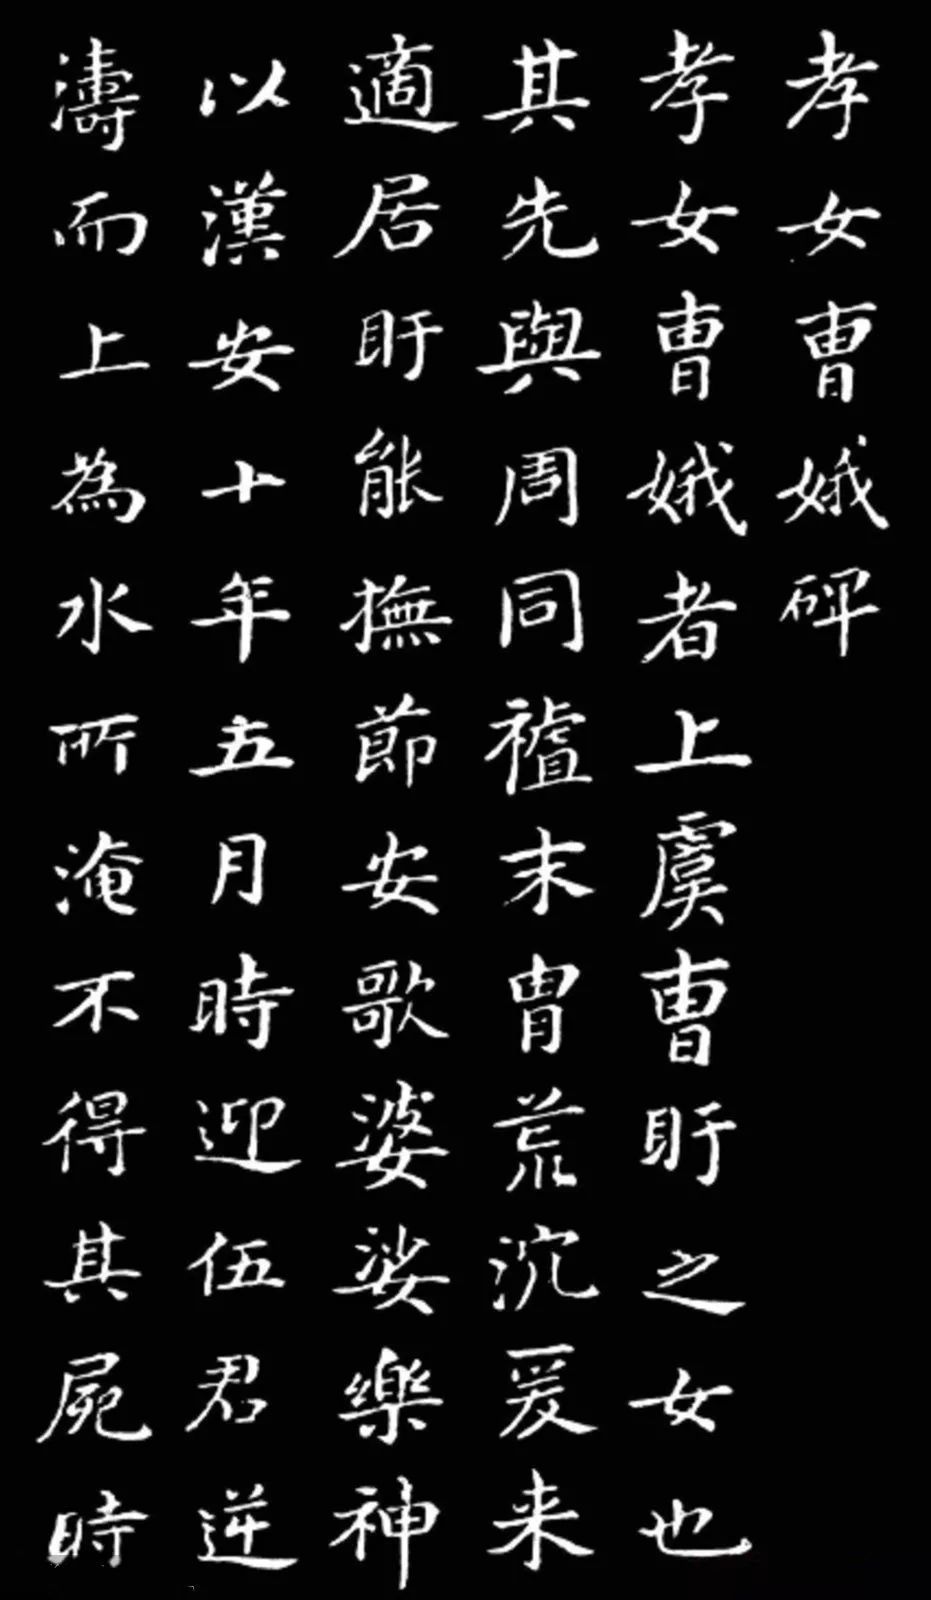 孝女曹娥碑
孝女曹娥者上虞曹盱之女也
其先與周同禠末胄荒沉爰来
適居盱能撫節安歌婆娑樂神
以漢安十年五月時迎伍君逆
濤而上為水所淹不得其屍時